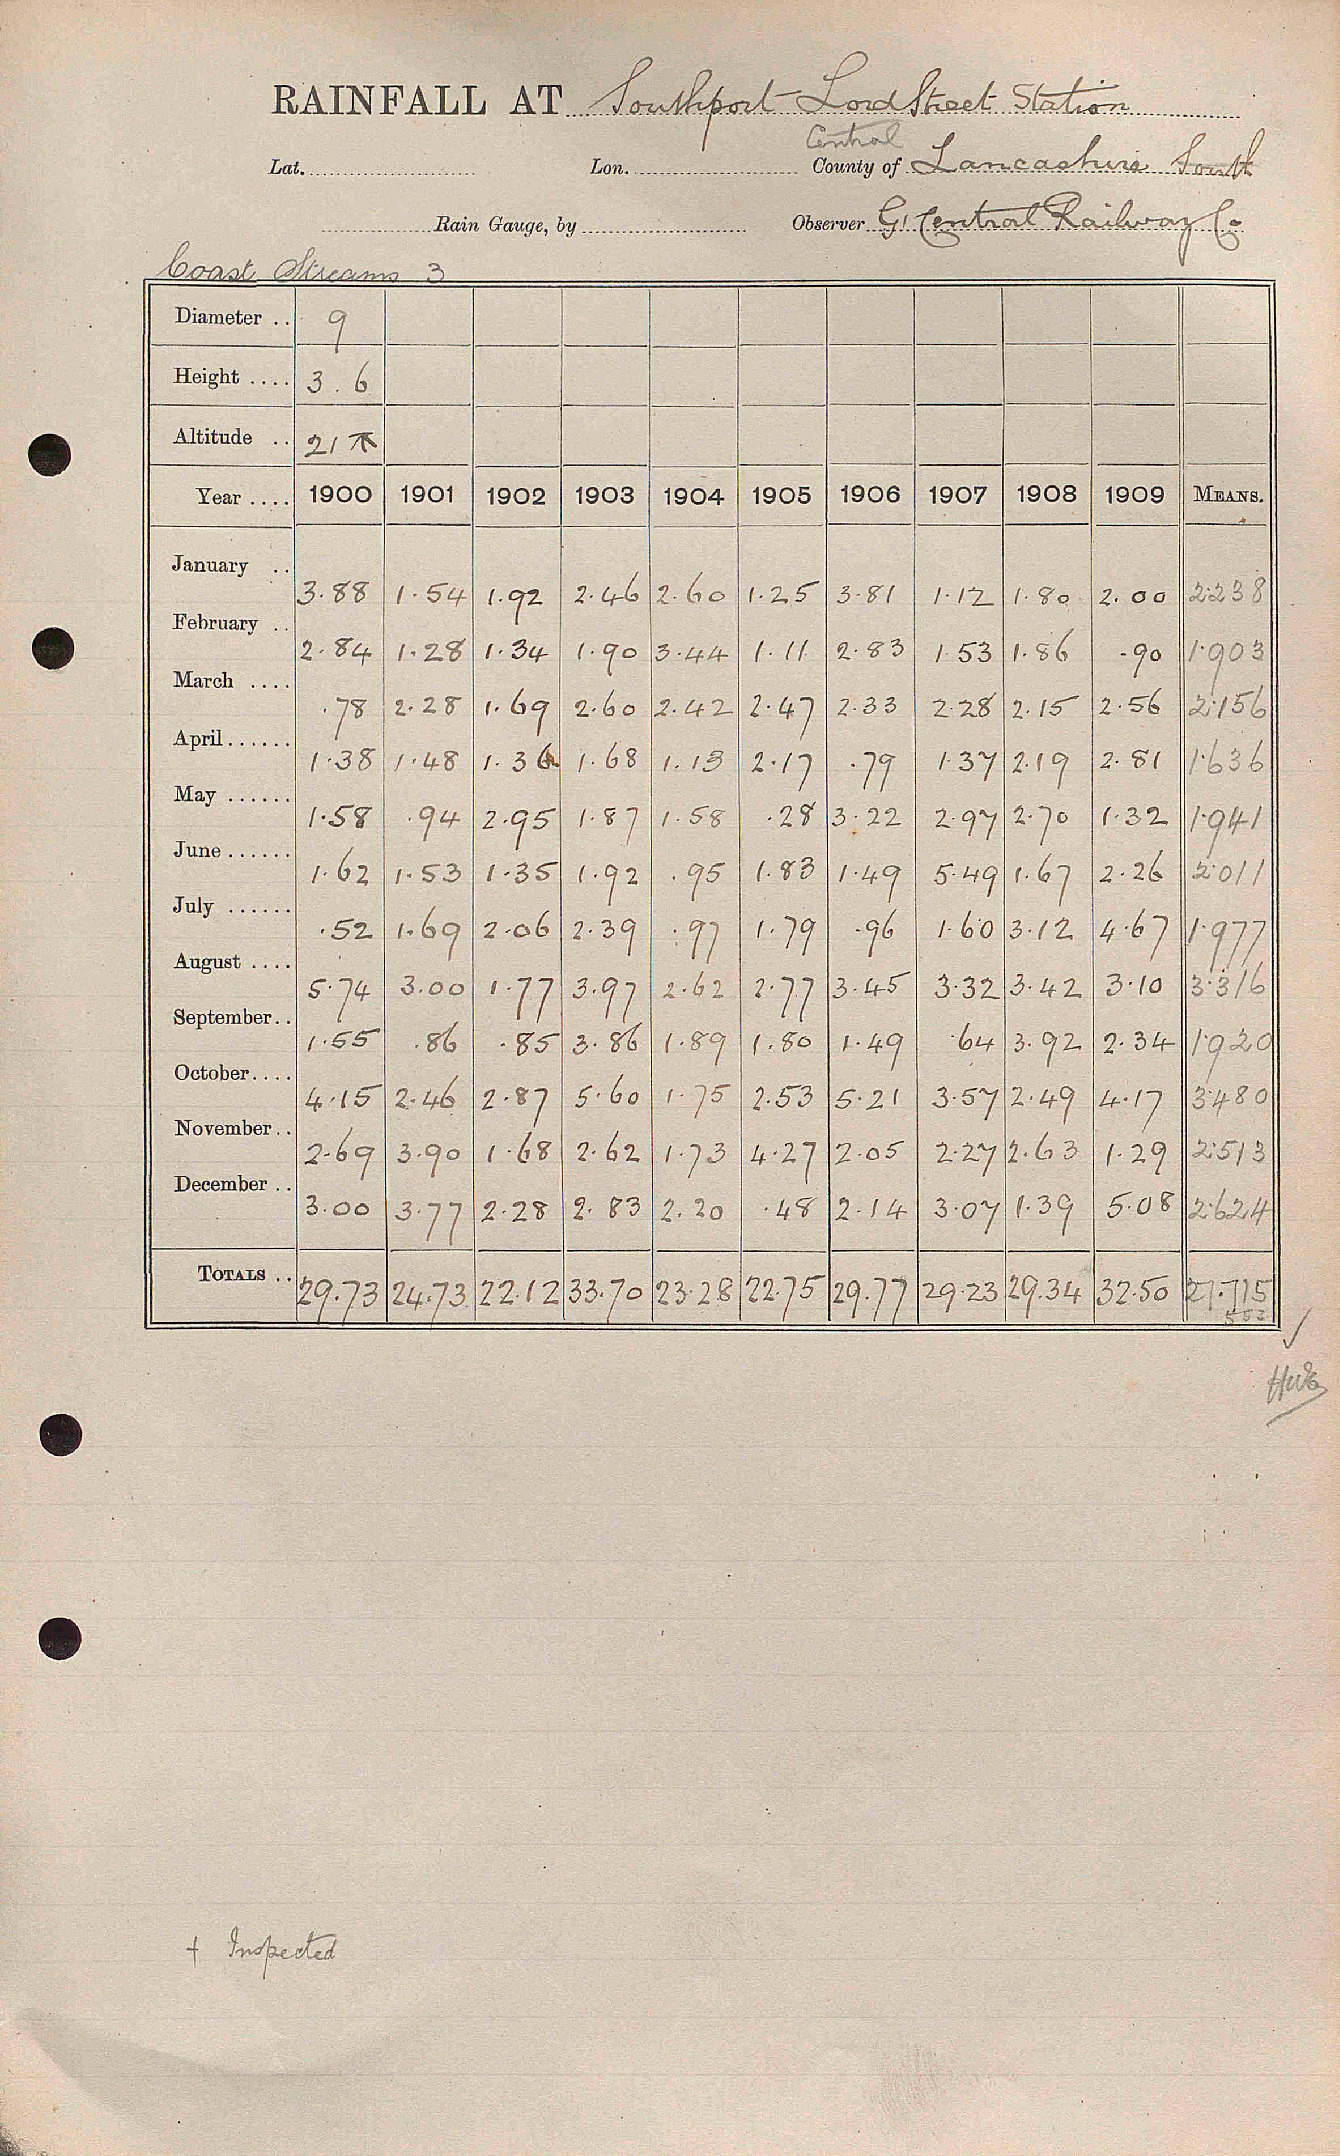 RAINFALL AT Southport Lord Street Station
Central
Lat. Lon. County of Lancashire South
Rain Gauge, by Observer Gt Central Railway Co
Coast Streams 3
Diameter .. 9
Height .... 3.6
Altitude .. 21
Year .... 1900 1901 1902 1903 1904 1905 1906 1907 1908 1909 MEANS.
January .. 3.88 1.54 1.92 2.46 2.60 1.25 3.81 1.12 1.80 2.00 2.238
February .. 2.84 1.28 1.34 1.90 3.44 1.11 2.83 1.53 1.86 .90 1.903
March .... .78 2.28 1.69 2.60 2.42 2.47 2.33 2.28 2.15 2.56 2.156
April...... 1.38 1.48 1.36 1.68 1.13 2.17 .79 1.37 2.19 2.81 1.636
May ...... 1.58 .94 2.95 1.87 1.58 .28 3.22 2.97 2.70 1.32 1.941
June ...... 1.62 1.53 1.35 1.92 .95 1.83 1.49 5.49 1.67 2.26 2.011
July ...... .52 1.69 2.06 2.39 .97 1.79 .96 1.60 3.12 4.67 1.977
August .... 5.74 3.00 1.77 3.97 2.62 2.77 3.45 3.32 3.42 3.10 3.316
September.. 1.55 .86 .85 3.86 1.89 1.80 1.49 .64 3.92 2.34 1.920
October.... 4.15 2.46 2.87 5.60 1.75 2.53 5.21 3.57 2.49 4.17 3.480
November.. 2.69 3.90 1.68 2.62 1.73 4.27 2.05 2.27 2.63 1.29 2.513
December .. 3.00 3.77 2.28 2.83 2.20 .48 2.14 3.07 1.39 5.08 2.624
TOTALS .. 29.73 24.73 22.12 33.70 23.28 22.75 29.77 29.23 29.34 32.50 27.715
† Inspected